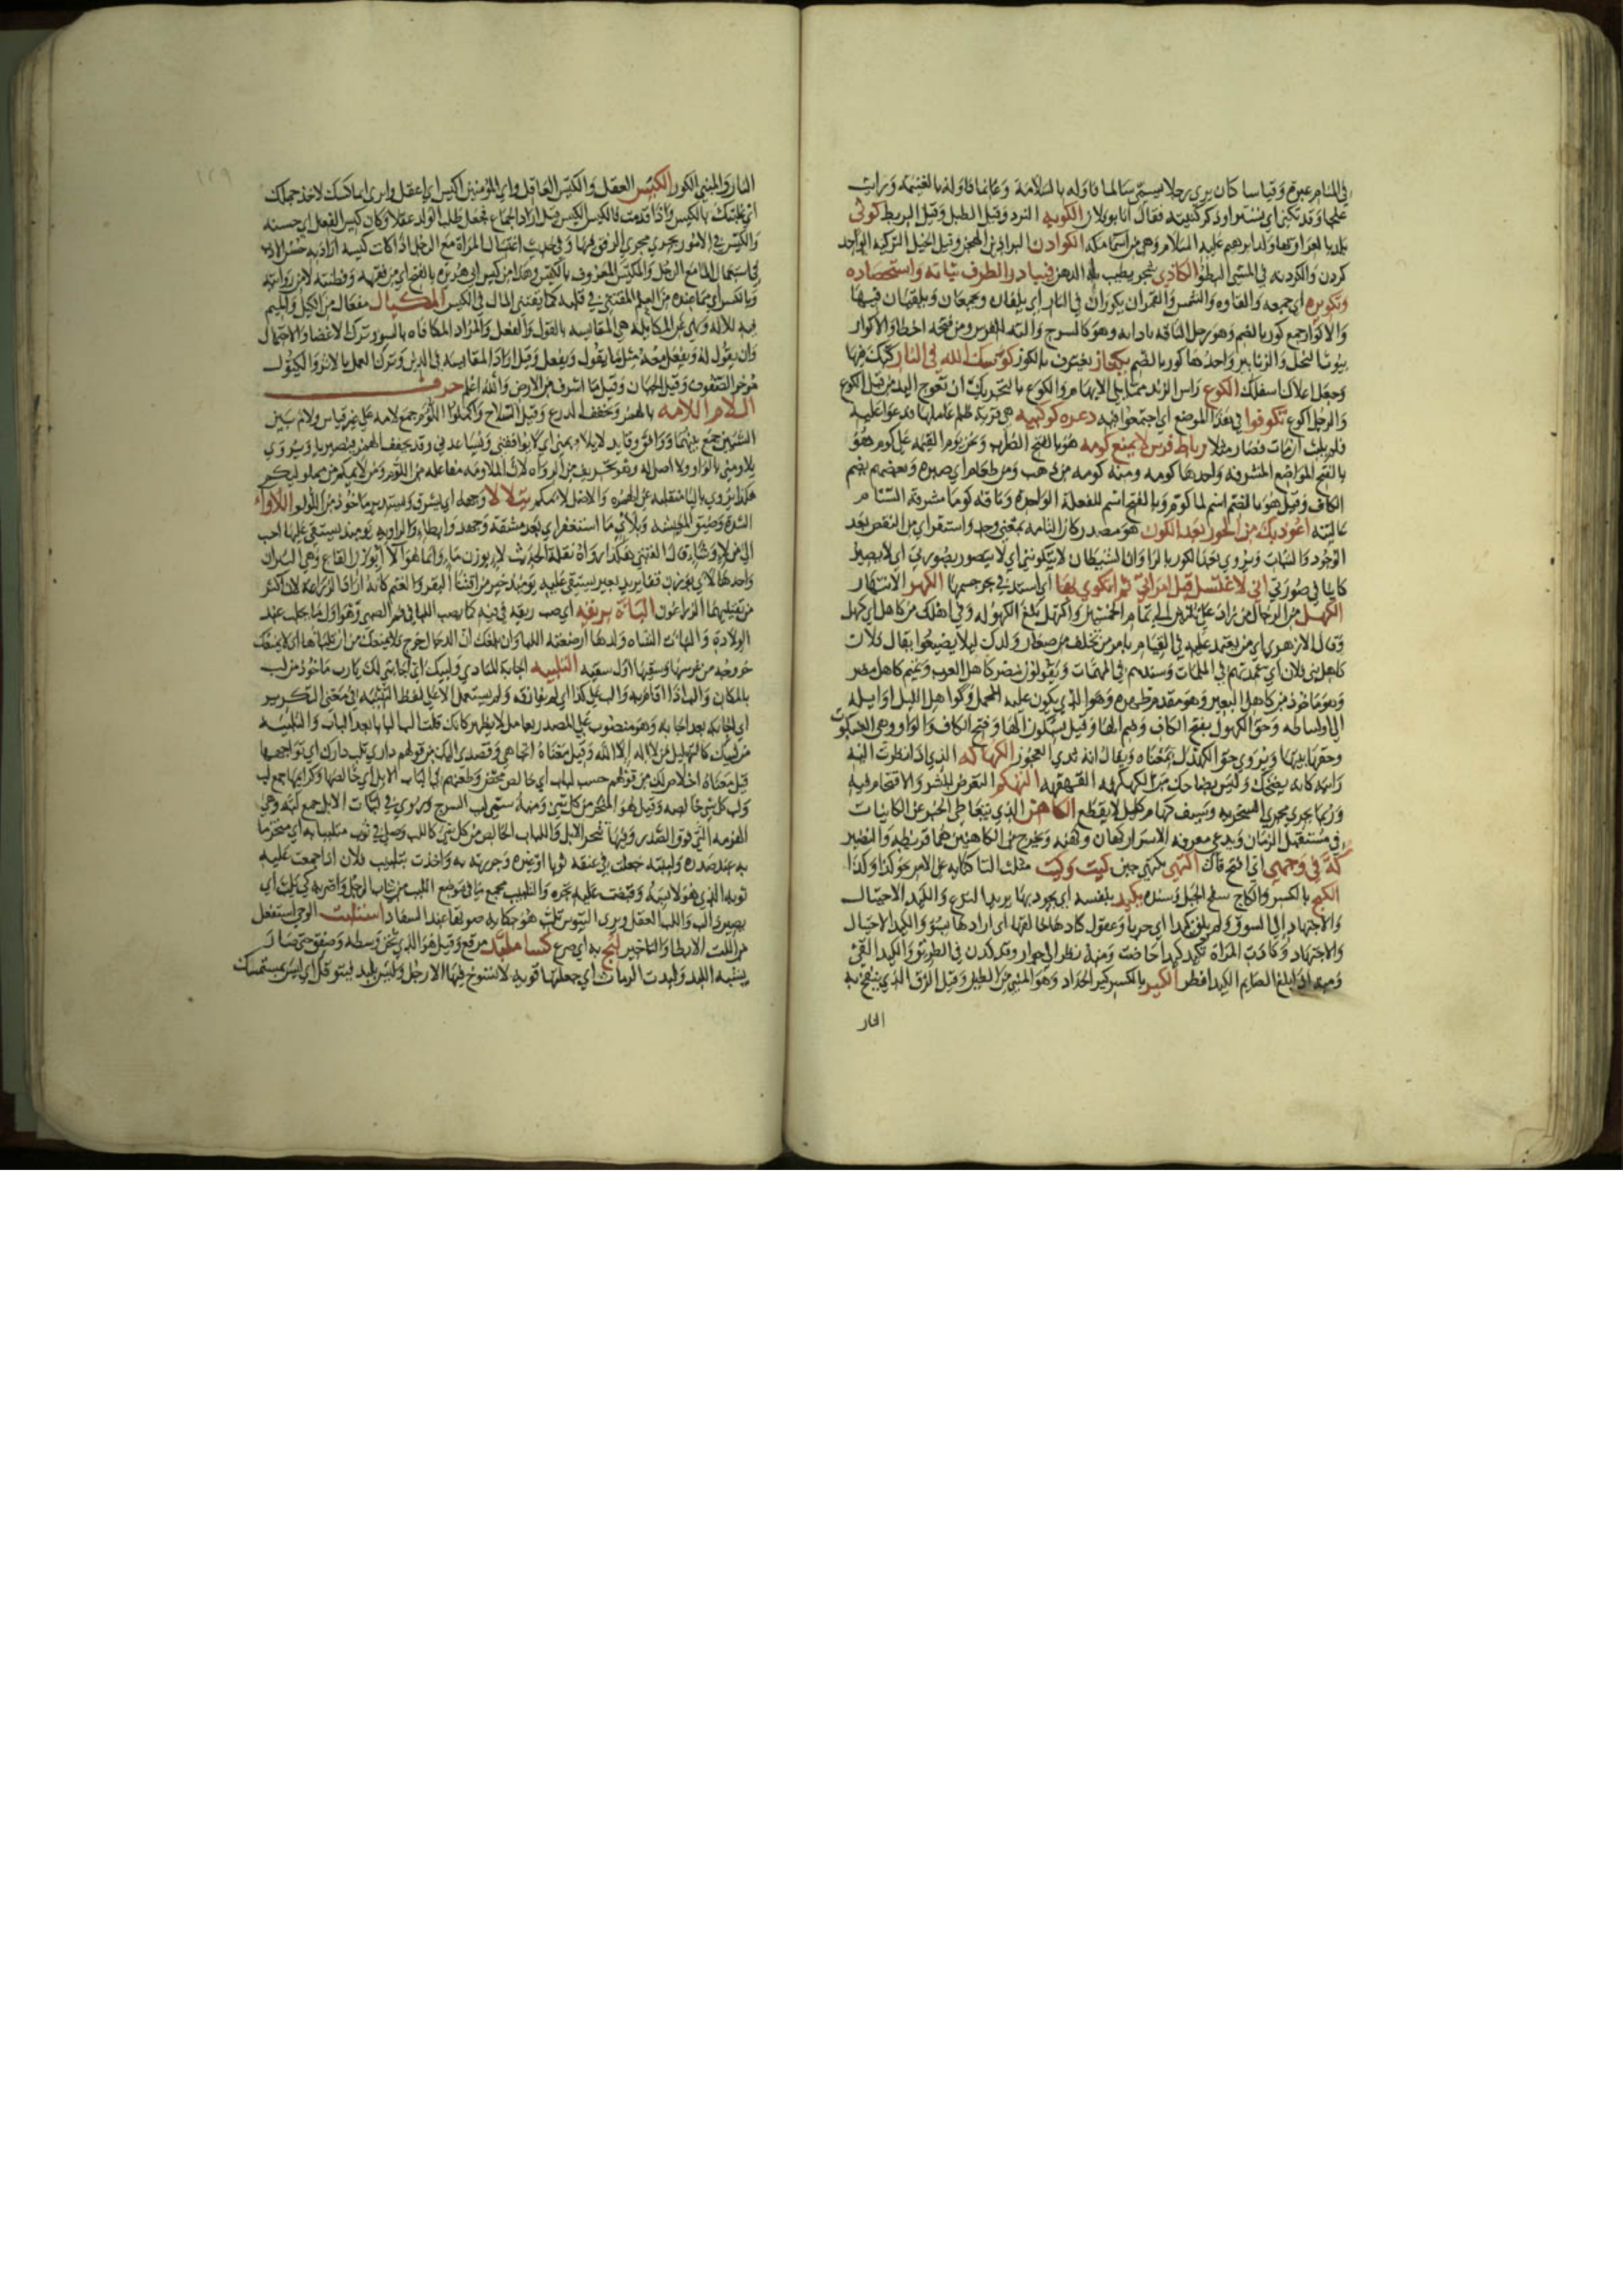 في المنام عبرة وقياسا كان يري رجلا يسمى سالما فاوله بالسلامة وغانما فاوله بالغنيمة ورايت
علجا وقد تكنى اي تستر او ذكر كنيته فقال انا بو فلان الكوبه النرد وقيل الطبل وقيل البربط كوثى
بلد بالعراق وبها ولد ابرهيم عليه السلام وهي من اسما مكة الكوادن البراذين الهجن وقيل الخيل التركيه الواحد
كردن والكودنه في المشي البطؤ الكاذي شجر يطيب به الدهن فبادر الطرف نباته واستحصاده
وتكويره اي جمعه والقاؤه والشمس والقمران يكوران في النار اي يلفان ويجمعان ويلقيان فيها
والاكوار جمع كور بالضم وهو رحل الناقه باداته وهو كالسرج واله للفرس ومن فتحه اخطا والاكوار
بيوت النحل والزنابير واحدها كور بالضم بكتاز يغترف بالكوز كوسك الله في النار كبك فيها
وجعل اعلاك اسفلك الكوع راس الزند مما يلي الابهام والكوع بالتحريك ان تعوج اليد من قبل الكوع
والرجل اكوع تكوفوا في هذا الموضع اي اجتمعوا فيه دعوه كوكبيه هي قرية ظلم عاملها فدعوا عليه
فلم يلبث ان مات فصار مثلا رباط فرس لا يمنع كومه هو بالفتح الضراب ونحن يوم القيمه على كوم هو
بالفتح المواضع المشرفه واحدها كومه ومنه كومه من ذهب ومن طعام اي صبره وبعضهم يضم
الكاف وقيل هو بالضم اسم لما كوم وبالفتح اسم للفعلة الواحدة وناقه كوما مشرفة السنام
عاليته اعوذ بك من الحور بعد الكون هو مصدر كان التامه بمعنى وجد واستقر اي من النقص بعد
الوجود والثبات ويروي بعد الكور بالراء وان الشيطان لا يتكونني اي لا يتصور بصورتي اي لا يصير
كاينا في صورتي اني لاغتسل قبل امراتي ثم اتكوي بها اي استدفي بحر جسمها الكهر الانتهار
الكهل من الرجال من زاد على ثلثين الى تمام الخمسين واكتهل بلغ الكهوله وفي اهلك من كاهل اي كهل
وقال الازهري اي من يعتمد عليه في القيام بامر من تخلف من صغار ولدك ليلا يضيعوا يقال فلان
كاهل بني فلان اي عمدتهم في الملمات وسندهم في المهمات ويقولون مضر كاهل العرب وتميم كاهل مضر
وهو ماخوذ من كاهل البعير وهو مقدم ظهره وهو الذي يكون عليه المحمل وكواهل الليل اوايله
الى اوساطه وحق الكهول بفتح الكاف وضم الها وقيل بسكون الها وفتح الكاف والواو وهي العنكبوت
وحقها بيتها ويروي حق الكهدل بمعناه ويقال انه ثدي العجوز الكهاكه الذي اذا نظرت اليه
رايته كانه يضحك وليس بضاحك من الكهكهه القهقهه التهكم التعرض للشر والاقتحام فيه
وربما يجري مجري السخريه وسيف كهام كليل لا يقطع الكاهن الذي يتعاطى الخبر عن الكاينات
في مستقبل الزمان ويدعي معرفه الاسرار كهان وكهنه ويخرج من الكاهنين هما قريظه والنضير
كه في وجهي اي افتح فاك النهي نكهتي جبن كيت وكيت مثلث التا كنايه عن الامر نحو كذا وكذا
الكيح بالكسر والكاح سفح الجبل وسنده يكيد بنفسه اي يجود بها يريد النزع والكيد الاحتيال
والاجتهاد الى السوق ولم يلق كيدا اي حربا وعقول كادها خالقها اي ارادها بسؤ والكيد الاحتيال
والاجتهاد وكادت المراة تكيد كيدا حاضت ومنه نظر الى جوار وقد كدن في الطريق والكيد القئ
ومنه اذا بلغ الصايم الكيد افطر الكير بالكسر كير الحداد وهو المبني من الطين وقيل الزق الذي ينفخ به
النار
النار والمبني الكور الكيس العقل والكيس العاقل واي المؤمنين اكيس اي اعقل واتري انما كستك لاخذ جملك
اي غلبتك بالكيس واذا قدمت فالكيس الكيس قيل اراد الجماع فجعل طلب الولد عقلا وكان كيس الفعل اي حسنه
والكيس في الامور يجري مجرى الرفق فيها وفي حديث اغتسال المراة مع الرجل اذا كانت كيسه اراد به حسن الادب
في استعمال الما مع الرجل والمكيس المعروف بالكيس وهذا من كيس ابي هريرة بالفتح اي من فقهه وفطنته لا من روايته
وبالكسر اي مما عنده من العلم المقتني في قلبه كما يقتني المال في الكيس المكيال مفعال من الكيل والميم
فيه للاله ونهى عن المكايله هي المقايسه بالقول والفعل والمراد المكافاه بالسوء وترك الاغضا والاحتمال
وان يقول له ويفعل معه مثل ما يقول ويفعل وقيل اراد المقايسه في الدين وترك العمل بالاثر والكيول
مؤخر الصفوف وقيل الجبان وقيل ما اشرف من الارض والله اعلم حرف
اللام اللامه بالهمز وتخفف الدرع وقيل السلاح واكملوا اللؤم جمع لامه على غير قياس ولام بين
الشيئين جمع بينهما ووافق وقايد لا يلاومني اي لا يوافقني ويساعدني وقد يخفف الهمز فتصير يا ويروي
يلاومني بالواو ولا اصل له وهو تحريف من الرواه لان الملاومه مفاعله من اللوم ومن لايمكم من مملوليكم
هكذا يروي باليا منقلبه عن الهمزه والاصل لاءمكم يتلالا وجهه اي يشرق ويستنير ماخوذ من اللؤلؤ اللاواء
الشدة وضيق المعيشه وبلاي ما استغفر اي بعد مشقه وجهد وابطاء والراويه يومئذ يستقى عليها احب
الي من لاء وشاء قال القتيبي هكذا رواه نقلة الحديث لاء بوزن ماء وانما هو الآء بوزن القاع وهي الثيران
واحدها لأى بوزن قفا يريد بعير يستقى عليه يومئذ خير من اقتنا البقر والغنم كانه اراد الزراعه لان اكثر
من يقتنيها الزراعون البأه بريقه اي صب ريقه في فيه كما يصب اللبا في فم الصبي وهو اول ما يحلب عند
الولادة والبأت الشاه ولدها ارضعته اللبا وان بلغك ان الدجال خرج فلا يمنعك من ان تلباها اي لا يمنعك
خروجه من غرسها وسقيها اول سقيه التلبيه اجابة المنادي ولبيك اي اجابتي لك يا رب ماخوذ من لب
بالمكان والب اذا اقام به والب على كذا اي لم يفارقه ولم يستعمل الا على لفظ التثنيه في معنى التكرير
اي اجابه بعد اجابه وهو منصوب على المصدر بعامل لا يظهر كانك قلت الب البابا بعد الباب والتلبيه
من لبيك كالتهليل من لا اله الا الله وقيل معناه اتجاهي وقصدي اليك من قولهم داري تلب دارك اي تواجهها
قيل معناه اخلاص لك من قولهم حسب لباب اي خالص محض وطعنهم في الباب الابل اي خالصها وكرايمها جمع لب
ولب كل شي خالصه وقيل هو المنحر من كل شي ومنه سمي لبب السرج ويروي في لبات الابل جمع لبه وهي
الهزمه التي فوق الصدر وفيها تنحر الابل واللباب الخالص من كل شي كاللب وصلى في ثوب متلببا به اي متحزما
به عند صدره ولببته جعلت في عنقه ثوبا او غيره وجررته به واخذت بتلبيب فلان اذا جمعت عليه
ثوبه الذي هو لابسه وقبضت عليه تجره والتلبيب مجمع ما في موضع اللبب من ثياب الرجل واضربه كي يلب اي
يصير ذا لب واللب العقل ويرى التيوس تلب هو حكايه صوتها عند السفاد استلبث الوحي استفعل
من اللبث الابطا والتاخير لبج به اي صرع كسا ملبد مرقع وقيل هو الذي ثخن وسطه وصفق حتى صار
يشبه اللبد ولبدت الدماث اي جعلتها قويه لا تسوخ فيها الارجل وليس بلبد فيتوقل اي ليس بمستمسك
١٢٩